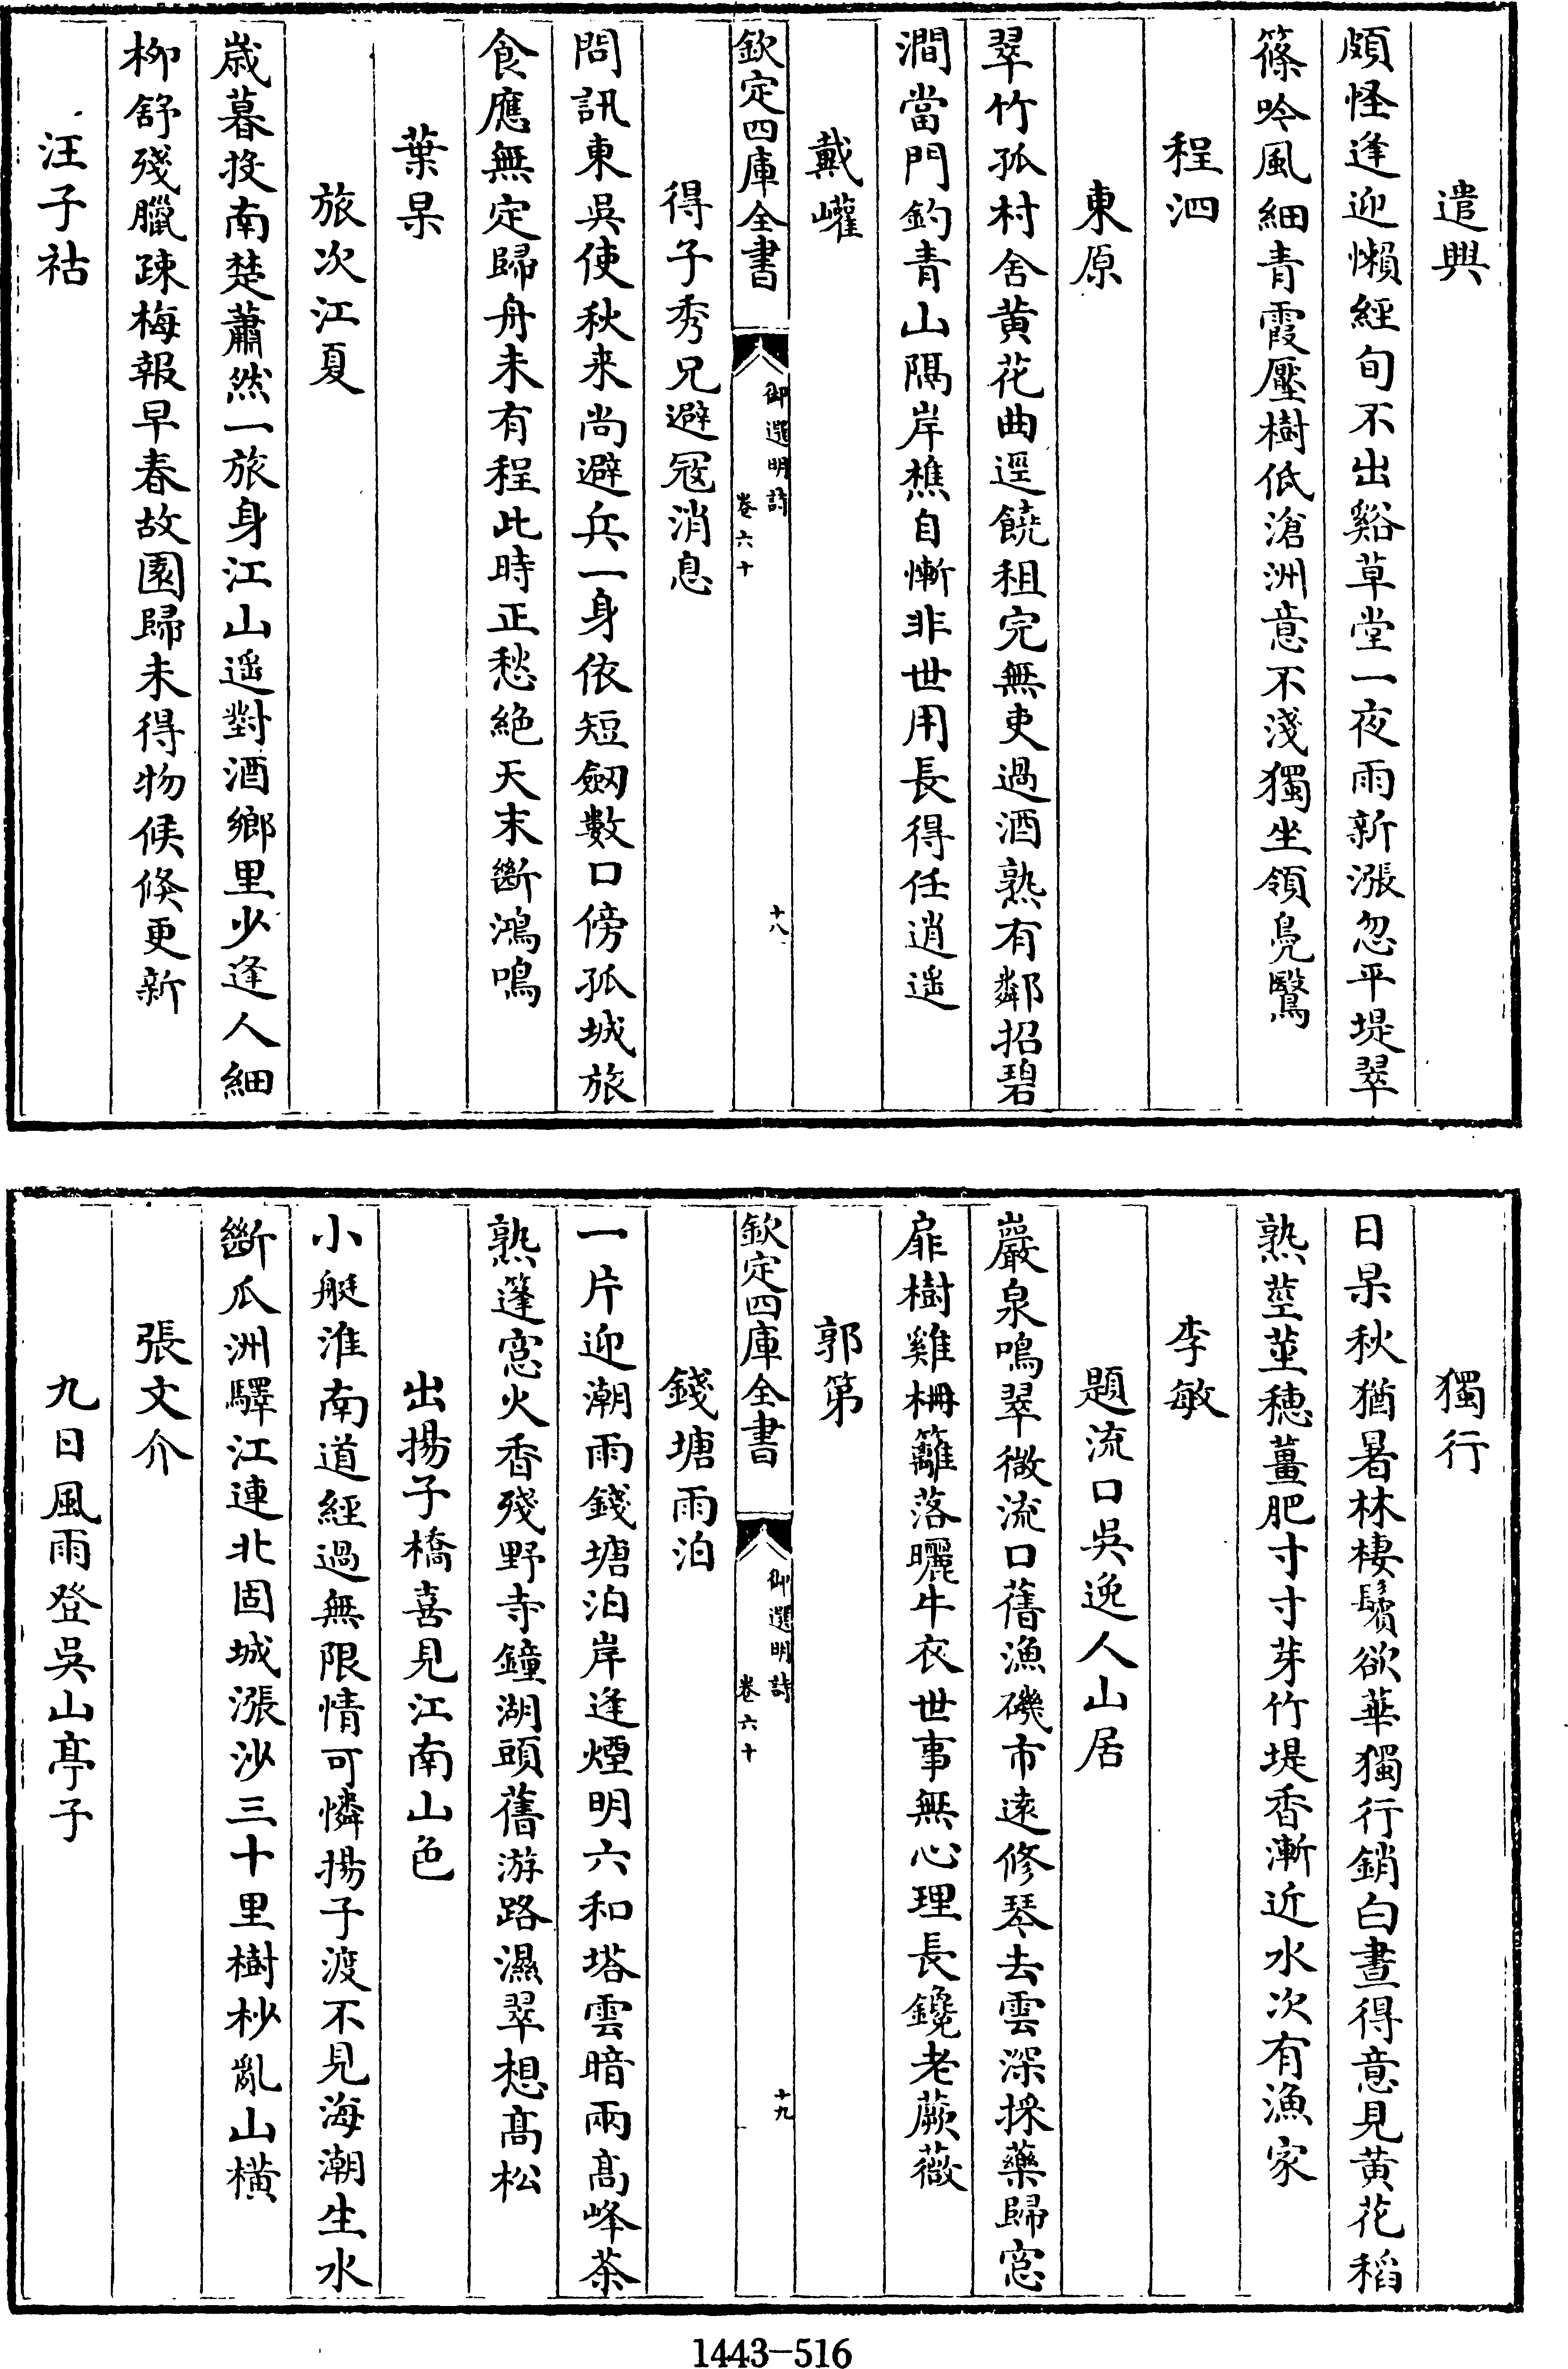 遣興
頗怪逢迎懶經旬不出谿草堂一夜雨新漲忽平堤翠
篠吟風細青霞壓樹低滄洲意不淺獨坐領鳧鷖
程泗
東原
翠竹孤村舍黄花曲逕饒租完無吏過酒熟有鄰招碧
澗當門釣青山隔岸樵自慚非世用長得任逍遥
戴㠢
欽定四庫全書
御選明詩
卷六十
十八
得子秀兄避冦消息
問訊東吳使秋来尚避兵一身依短劔數口傍孤城旅
食應無定歸舟未有程此時正愁絶天末斷鴻鳴
葉杲
旅次江夏
歳暮投南楚蕭然一旅身江山遥對酒鄉里少逢人細
柳舒殘臘疎梅報早春故園歸未得物候倐更新
汪子祜
獨行
日杲秋猶暑林棲鬢欲華獨行銷白晝得意見黄花稻
熟莖莖穗薑肥寸寸芽竹堤香漸近水次有漁家
李敏
題流口吳逸人山居
巖泉鳴翠微流口舊漁磯市逺修琴去雲深採藥歸窓
扉樹雞柵籬落曬牛衣世事無心理長鑱老蕨薇
郭第
欽定四庫全書
御選明詩
卷六十
十九
錢塘雨泊
一片迎潮雨錢塘泊岸逢煙明六和塔雲暗兩髙峰茶
熟篷窓火香殘野寺鐘湖頭舊游路濕翠想髙松
出揚子橋喜見江南山色
小艇淮南道經過無限情可憐揚子渡不見海潮生水
斷瓜洲驛江連北固城漲沙三十里樹杪亂山橫
張文介
九日風雨登吳山亭子
1443-516